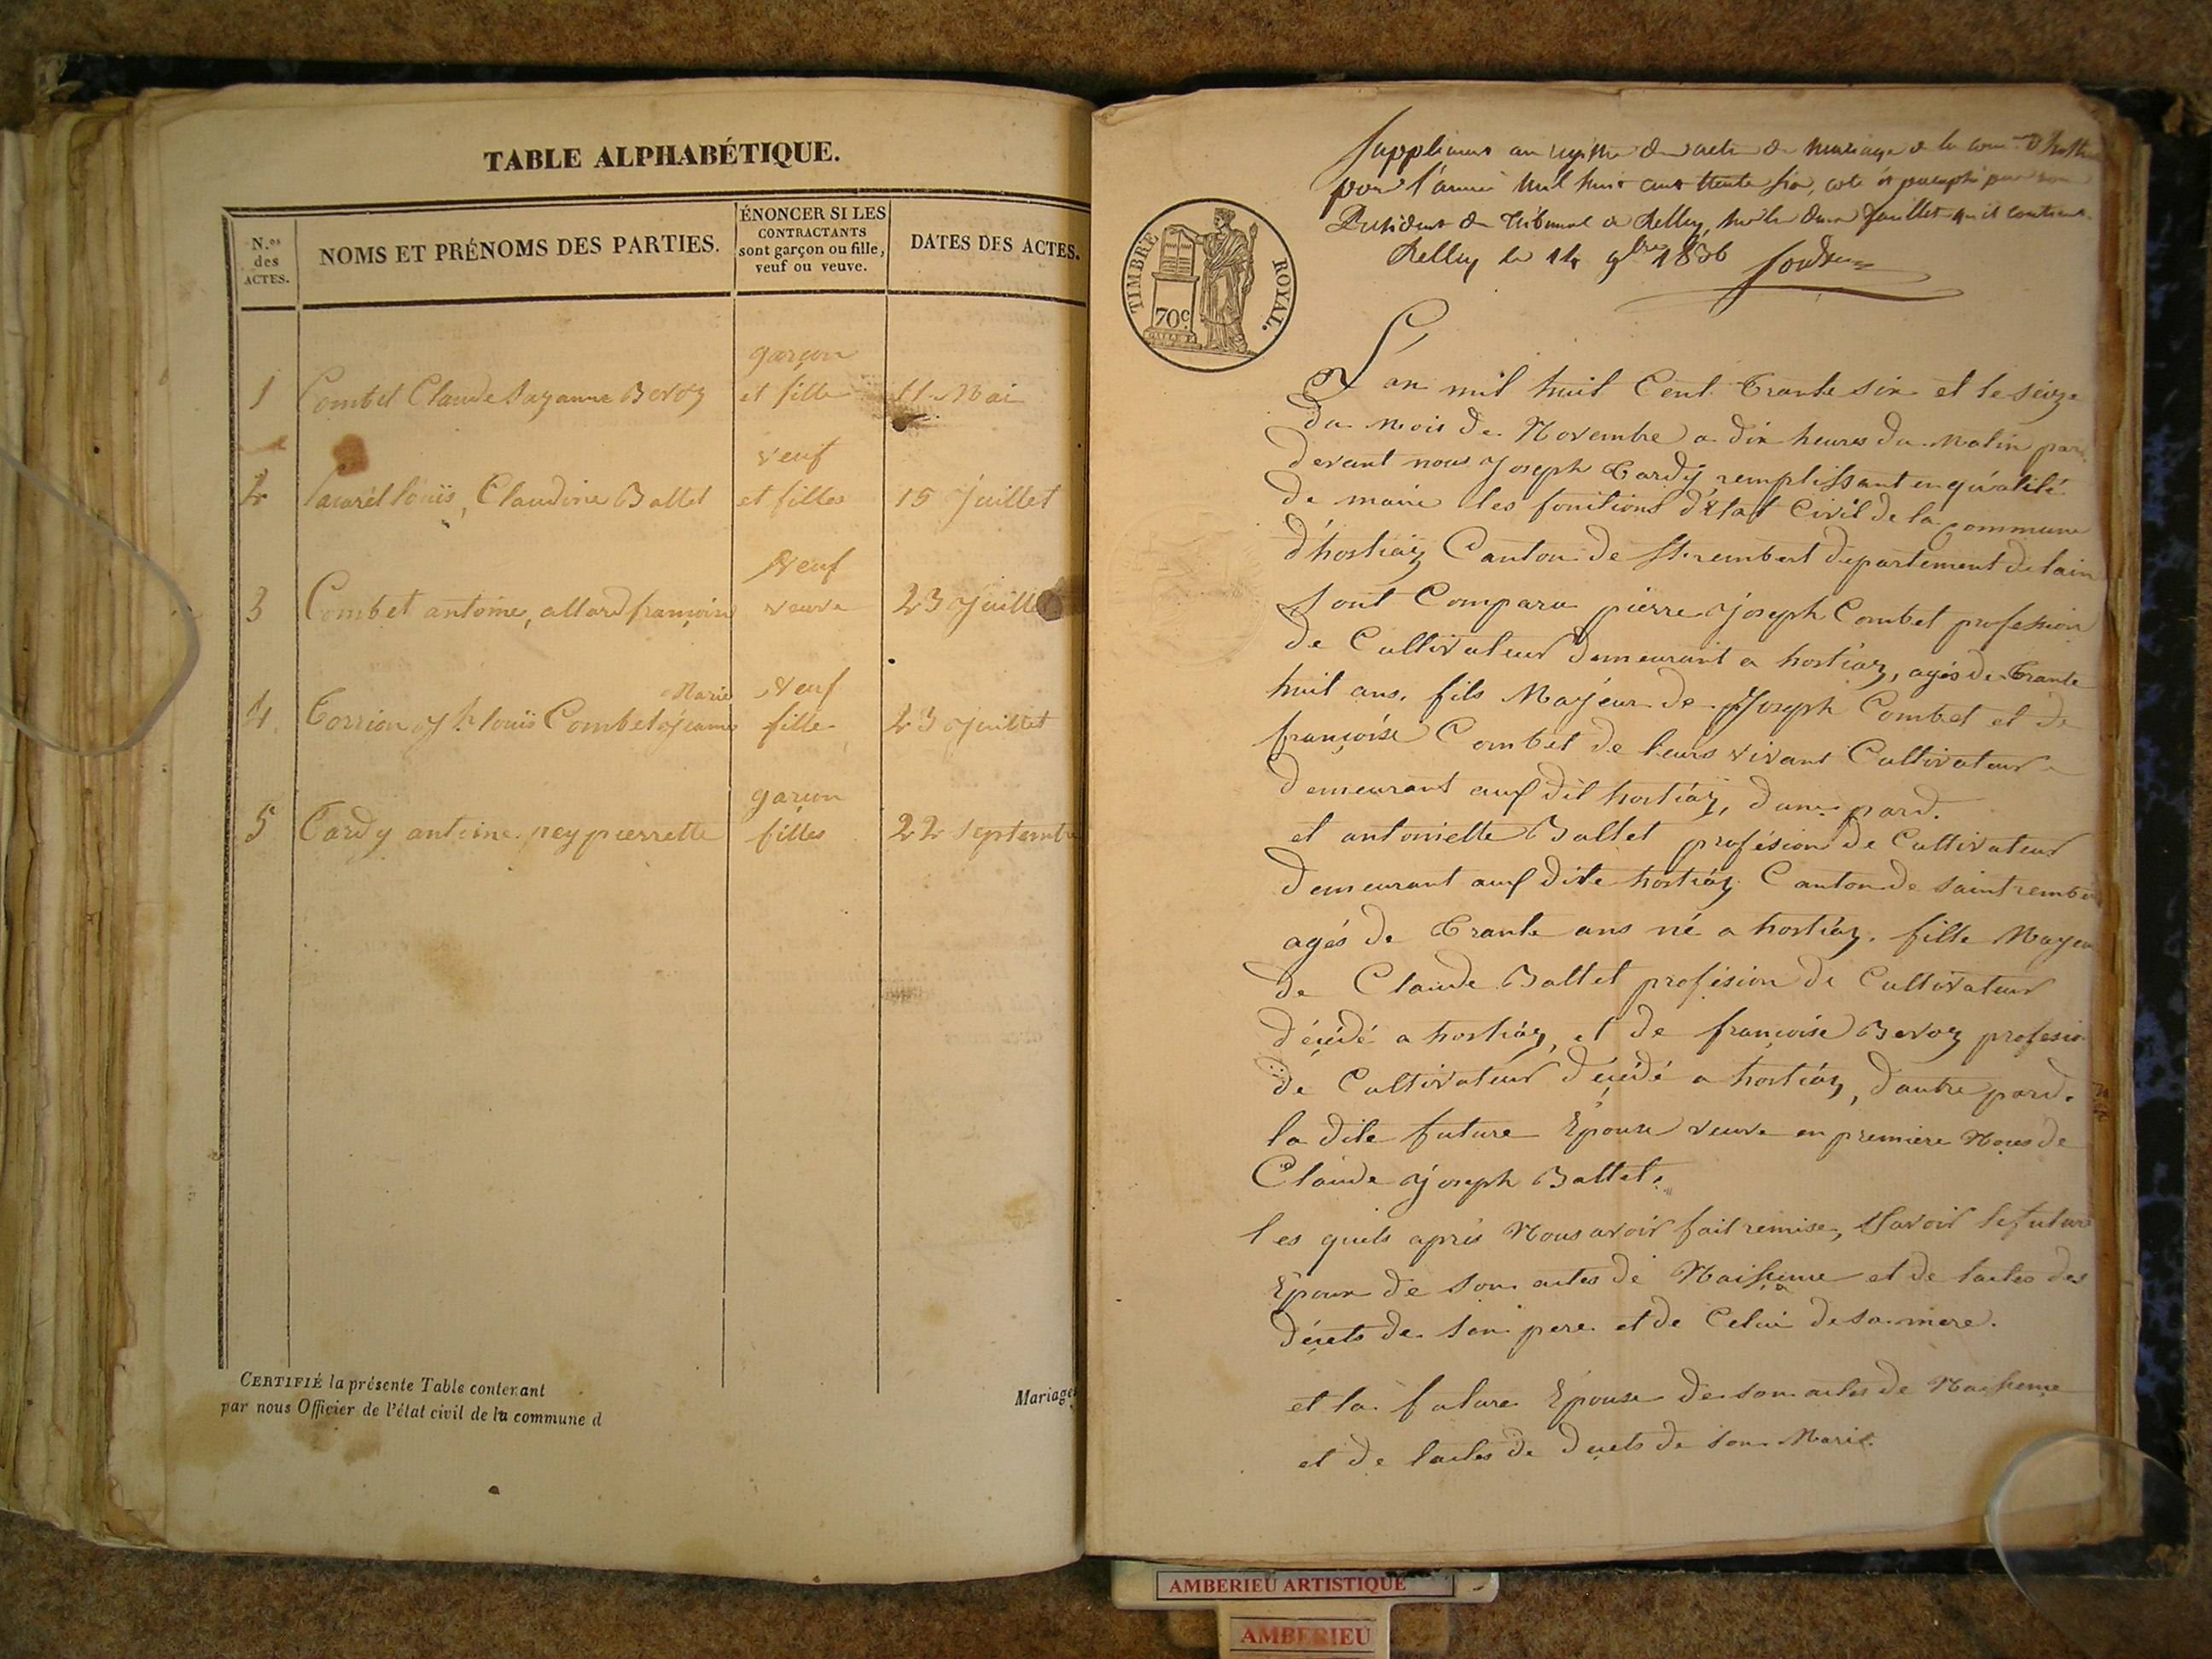 TABLE ALPHABÉTIQUE.
N.os des ACTES.
NOMS ET PRÉNOMS DES PARTIES.
ÉNONCER SI LES
CONTRACTANTS
sont garçon ou fille,
veuf ou veuve.
DATES DES ACTES.
garçon
1 Combet Claude Suzanne Bevoz et fille 11 Mai
veuf
2 louïs, Claudine Ballet et filles 15 Juillet
Veuf
3 Combet antoine, allard françoise veuve 23 Juillet
Marie Veuf
4 Corrion jh louïs Combet jeanne fille 23 Juillet
garçon
5 Cardy antoine pey pierrette filles 22 Septembre
CERTIFIÉ la présente Table contenant
par nous Officier de l'état civil de la commune d
Mariages
Supplément au registre des actes de mariage de la
pour l'année mil huit cent trente six, coté et paraphé par nous
Président du Tribunal de Belley, sur les deux feuillets qu'il contient.
Belley le 14 9bre 1836
TIMBRE ROYAL.
70c
L'an mil huit Cent trante six et le seize
du mois de Novembre a dix heures du matin par
devant nous Joseph Cardy remplissant en qualité
de maire les fonitions d'état Civil de la Commune
d'hostiaz Canton de St rembert departement de lain
Sont Comparu pierre joseph Combet profession
de Cultivateur demeurant a hostiaz, agés de trante
huit ans, fils Majeur de Joseph Combet et de
françoise Combet de leurs vivant Cultivateur
demeurant aux dit hostiaz, dune pard.
et antoniette Ballet profésion de Cultivateur
demeurant aux dite hostiaz Canton de saint rembert
agés de trante ans né a hostiaz. fille Majeur
de Claude Ballet profésion de Cultivateur
décédé a hostiaz, et de françoise Bevoz profesion
de Cultivateur décédé a hostiaz, dautre pard.
la dite future Epouse veuve en premiere Noces de
Claude joseph Ballet.
les quels aprés Nous avoir fait remise, Savoir le future
Epoux de son actes de Naissance et de lactes des
décets de son pere et de Celui de sa mere.
et la future Epouse de son actes de Naissence
et de lactes de decets de son Marie
AMBERIEU ARTISTIQUE
AMBERIEU